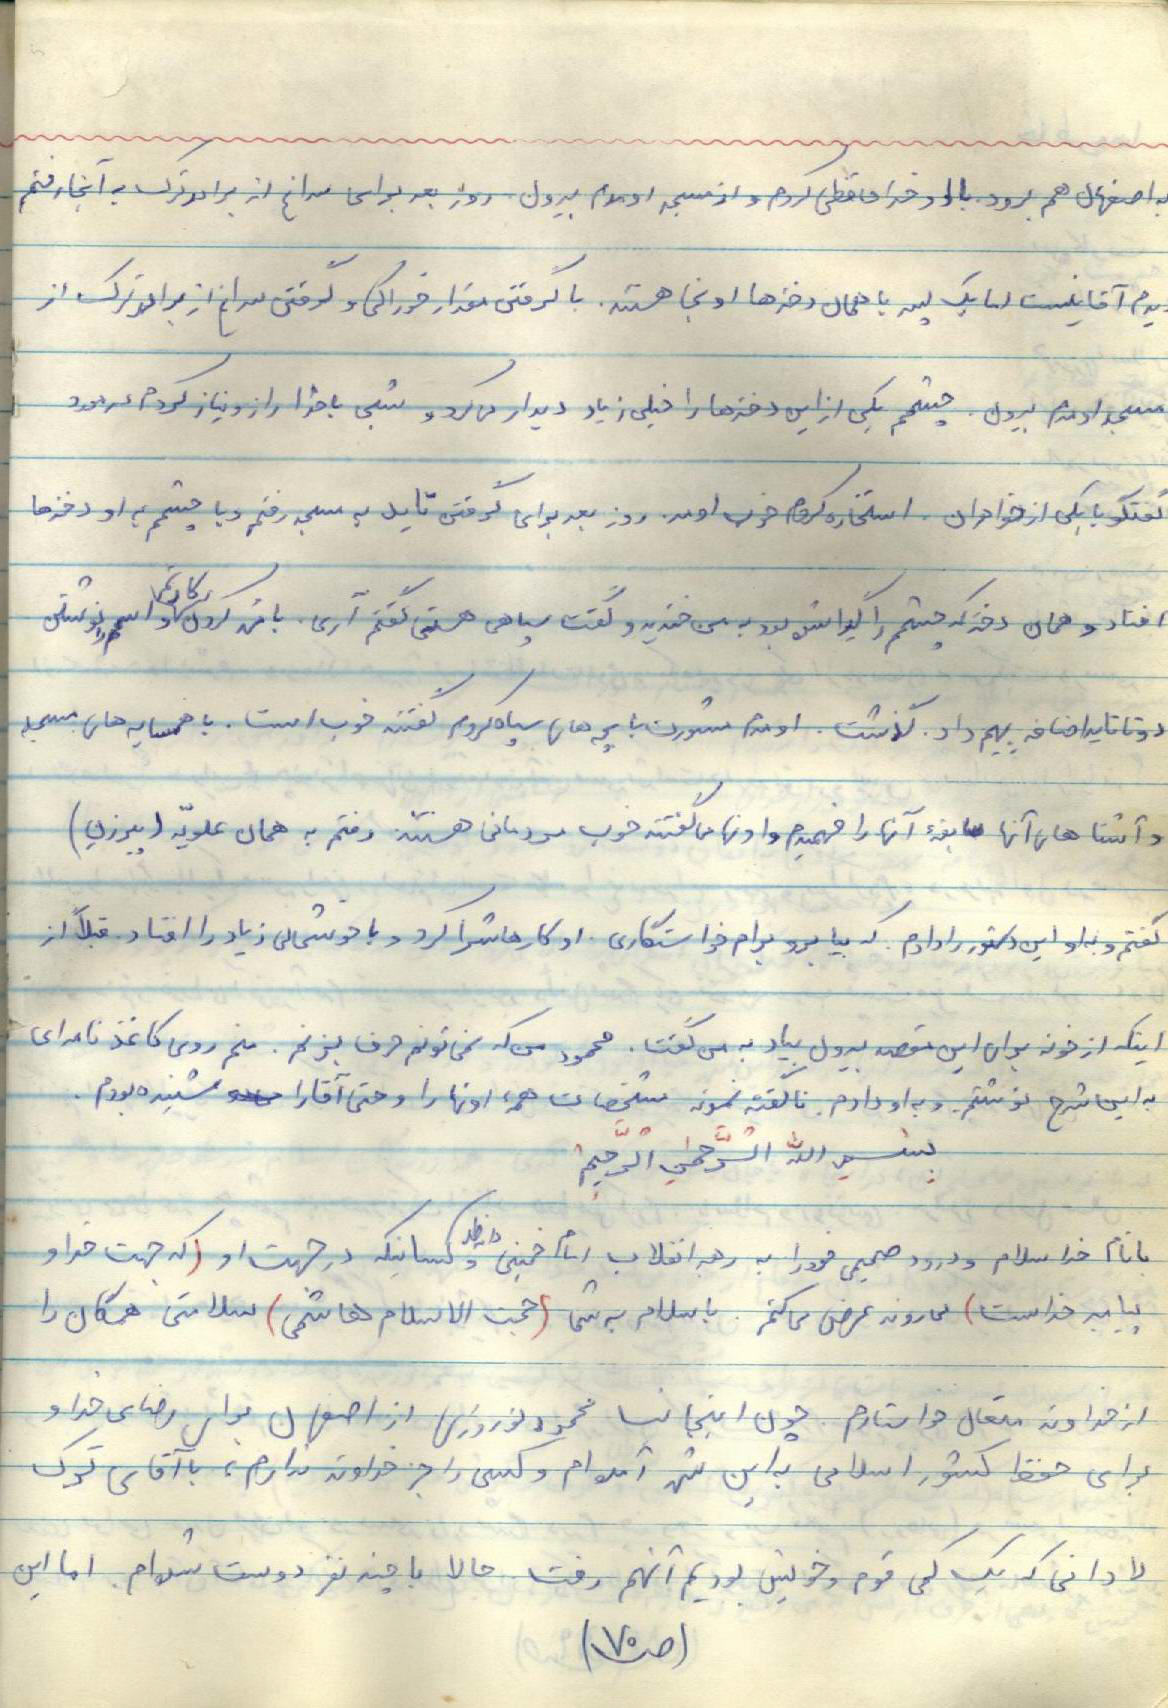 به اصفهان هم برود. با او خداحافظی کردم و از مسجد اومدم بیرون. روز بعد برای سراغ از برادر ترک به آنجا رفتم
دیدم آقا نیست اما یک پسر با همان دخترها اونجا هستند. با گرفتن مقدار خوراکی و گرفتن سراغ از برادر ترک از
مسجد اومدم بیرون. چشمم یکی از این دخترها را خیلی زیاد دیدار می‌کرد و شبی با خدا راز و نیاز کردم در مورد
گفتگو با یکی از خواهران. استخاره کردم خوب اومد. روز بعد برای گرفتن تاید به مسجد رفتم و با چشمم به او دخترها
افتاد و همان دختر که چشمم را گیراش بود به من خندید و گفت سپاهی هستی گفتم آری. با کردن کارتم و اسمم را نوشتن
دو تا تاید اضافه بهم داد. گذشت. اومدم مشورت با بچه‌های سپاه کردم گفتند خوب است. با همسایه‌های مسجد
و آشناهای آنها سابقهٔ آنها را فهمیدم و اونها می‌گفتند خوب مردمانی هستند. رفتم به همان علویّه (پیرزن)
گفتم و به او این دستور را دادم. که بیا برو برام خواستگاری. او کارهاشرا کرد و با خوشحالی زیاد را افتاد. قبلاً از
اینکه از خونه برای این مقصد بیرول بیاد به من گفت. محمود من که نمی‌تونم حرف بزنم. منم روی کاغذ نامه‌ای
به این شرح نوشتم. و به او دادم. ناگفته نمونه مشخصات همهٔ اونها را و حتی آقا را شنیده بودم.
بِسْمِ اللهِ الرَّحْمٰنِ الرَّحِیمْ
با نام خدا سلام و درود صمیمی خود را به رهبر انقلاب امام خمینی مدظله و کسانیکه در جهت او (که جهت خدا و
پیامبر خداست) می‌روند عرض می‌کنم. با سلام به شما (حجت الاسلام هاشمی) سلامتی همگان را
از خداوند متعال خواستارم. چون اینجانب محمود نوروزی از اصفهان برای رضای خدا و
برای حفظ کشور اسلامی به این شهر آمده‌ام و کسی را جز خداوند ندارم، با آقای ترک
لادانی که یک کمی قوم و خویش بودیم آنهم رفت حالا با چند نفر دوست شده‌ام. اما این
(ص ۱۷۰)